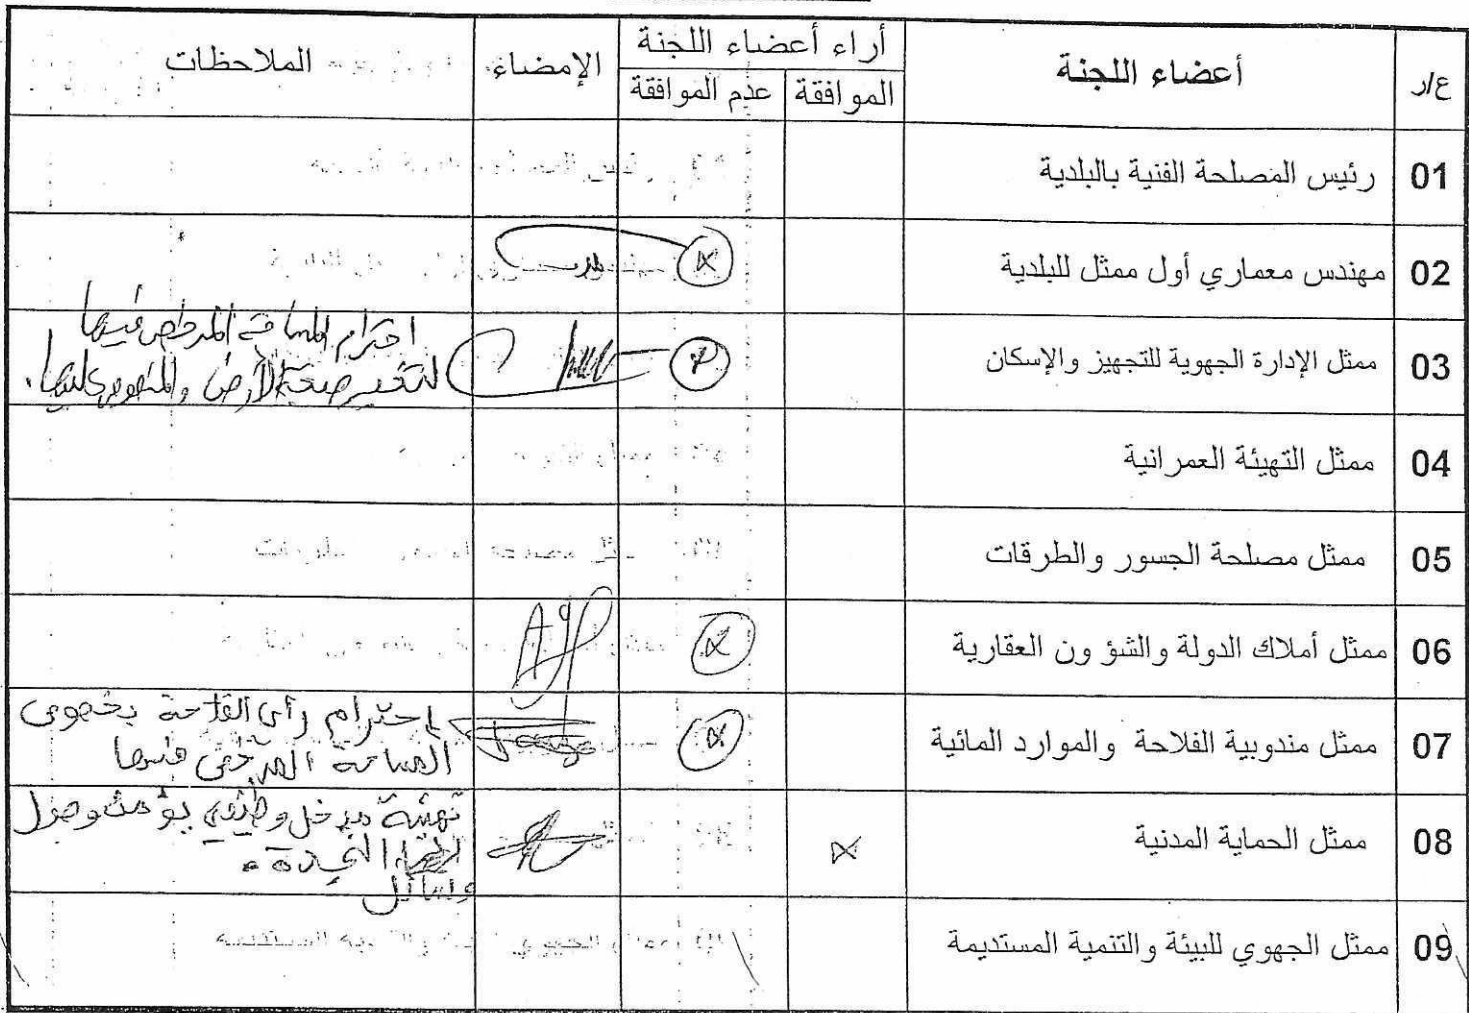 ع/ر أعضاء اللجنة أراء أعضاء اللجنة الإمضاء الملاحظات
الموافقة عدم الموافقة
01 رئيس المصلحة الفنية بالبلدية
02 مهندس معماري أول ممثل للبلدية
03 ممثل الإدارة الجهوية للتجهيز والإسكان
احترام المساحة المرخص فيها
لتغيير صبغة الأرض والمنصوص عليها.
04 ممثل التهيئة العمرانية
05 ممثل مصلحة الجسور والطرقات
06 ممثل أملاك الدولة والشؤ ون العقارية
07 ممثل مندوبية الفلاحة والموارد المائية
إحترام رأي الفلاحة بخصوص
المساحة المرخص فيها
08 ممثل الحماية المدنية X
تهيئة مدخل وظيفي يؤمن وصول
وسائل النجدة.
09 ممثل الجهوي للبيئة والتنمية المستديمة